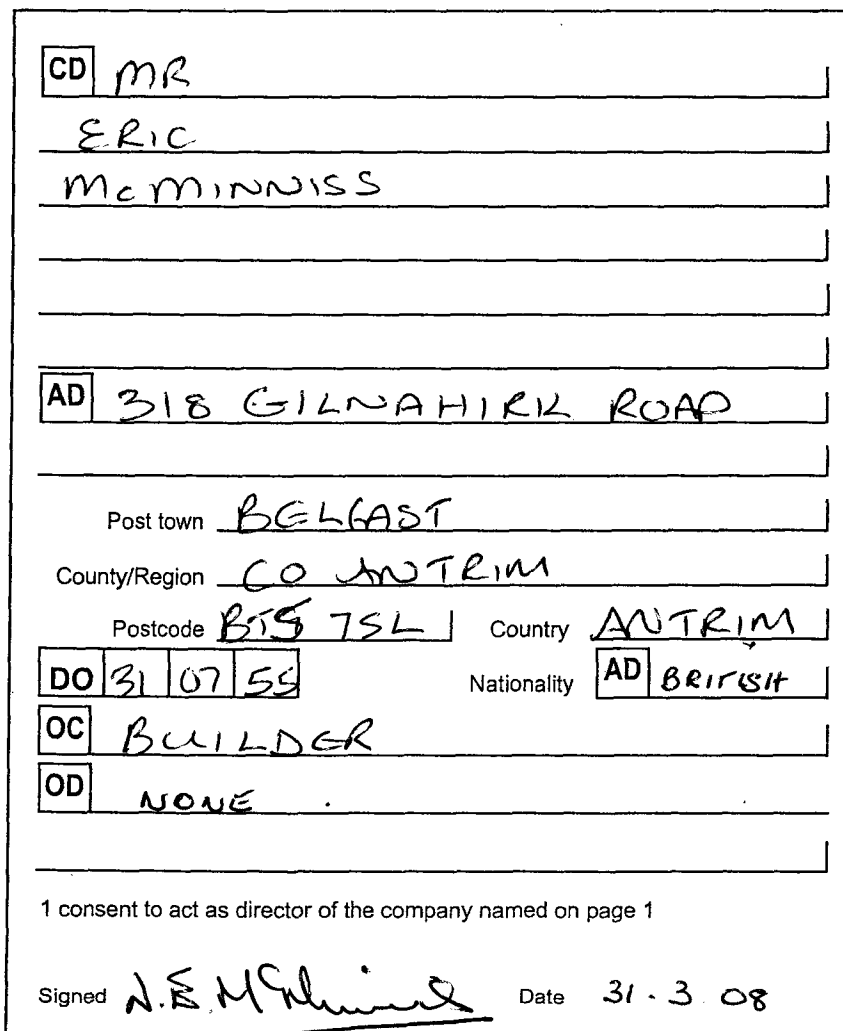 CD MR
ERIC
McMINNISS
AD 318 GILNAHIRK ROAD
Post town BELFAST
County/Region CO ANTRIM
Postcode BT5 7SL Country ANTRIM
DO 31 07 55 Nationality AD BRITISH
OC BUILDER
OD NONE
1 consent to act as director of the company named on page 1
Signed N.E. Date 31.3.08